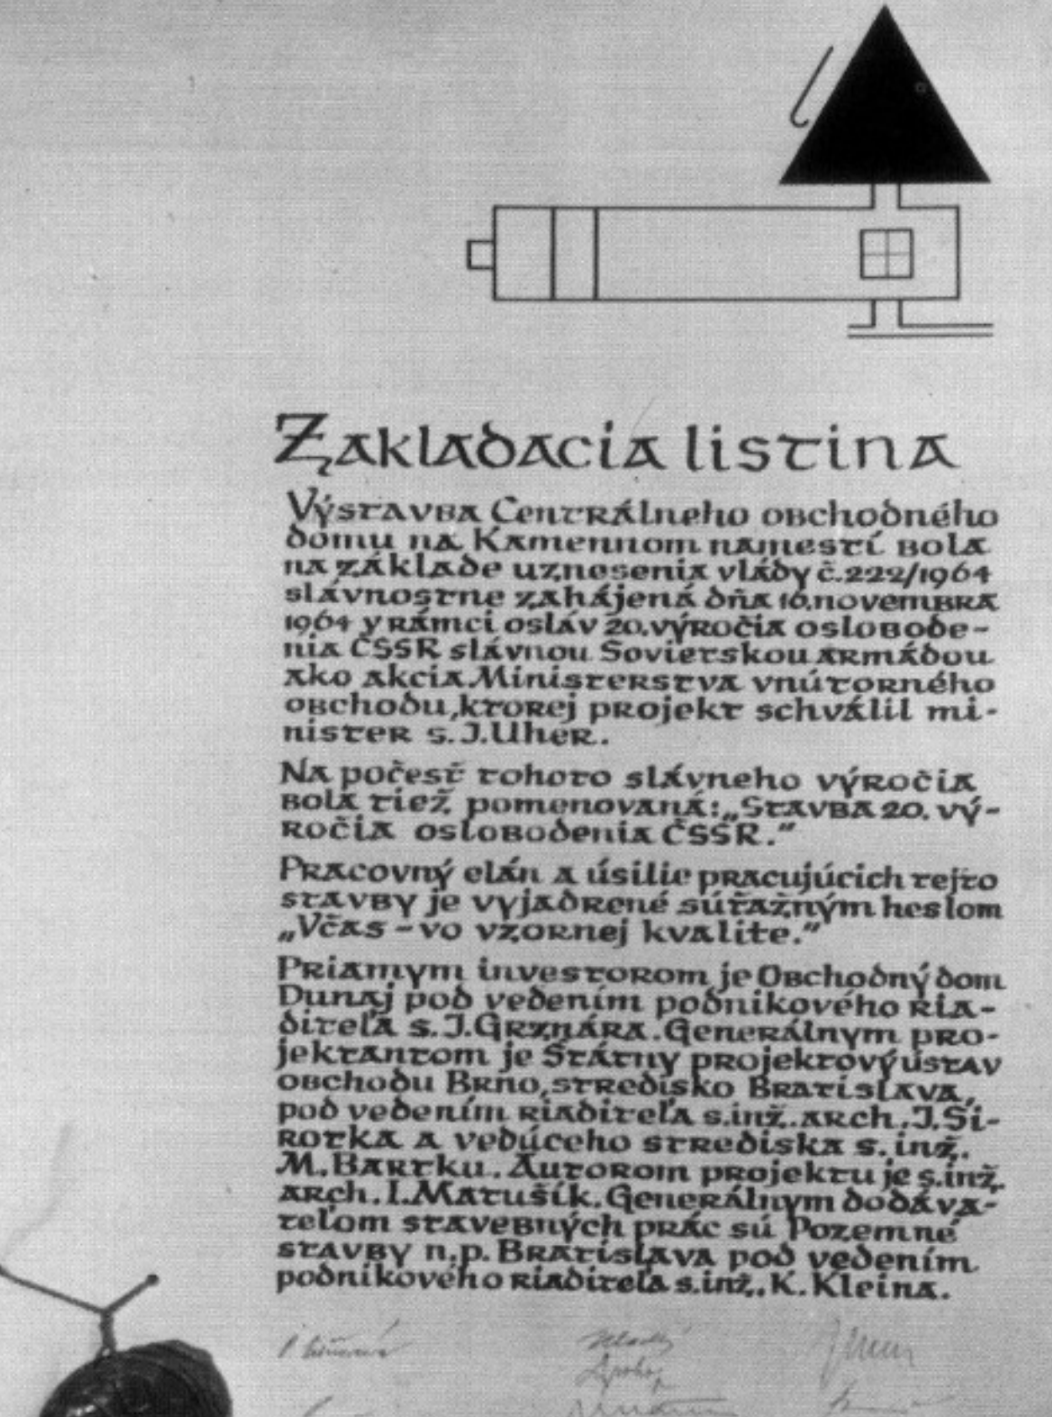 Zakladacia listina
Výstavba Centrálneho obchodného
domu na Kamennom namestí bola
na základe uznesenia vlády č.222/1964
slávnostne zahájená dňa 16.novembra
1964 v rámci osláv 20.výročia oslobode-
nia ČSSR slávnou Sovietskou armádou
ako akcia Ministerstva vnútorného
obchodu,ktorej projekt schválil mi-
nister s.J.Uher.
Na počesť tohoto slávneho výročia
bola tiež pomenovaná:„Stavba 20. vý-
ročia oslobodenia ČSSR.“
Pracovný elán a úsilie pracujúcich tejto
stavby je vyjadrené súťažným heslom
„Včas – vo vzornej kvalite.“
Priamym investorom je Obchodný dom
Dunaj pod vedením podnikového ria-
diteľa s.J.Grznára. Generálnym pro-
jektantom je Štátny projektový ústav
obchodu Brno,stredisko Bratislava,
pod vedením riaditeľa s.inž.arch.J.Si-
rotka a vedúceho strediska s.inž.
M.Bartku. Autorom projektu je s.inž.
arch.I.Matušík. Generálnym dodáva-
teľom stavebných prác sú Pozemné
stavby n.p. Bratislava pod vedením
podnikového riaditeľa s.inž. K. Kleina.